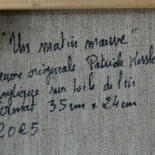 "Un matin mauve"
œuvre originale Patrick Hessle
acrylique sur toile de lin
format 35cm x 24cm
2025